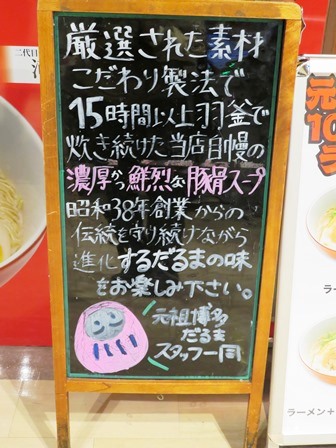 厳選された素材
こだわり製法で
15時間以上羽釜で
炊き続けた当店自慢の
濃厚かつ鮮烈な豚骨スープ
昭和38年創業からの
伝統を守り続けながら
進化するだるまの味
をお楽しみ下さい。
元祖博多
だるま
スタッフ一同
二代目
元
ラー
ラーメン+